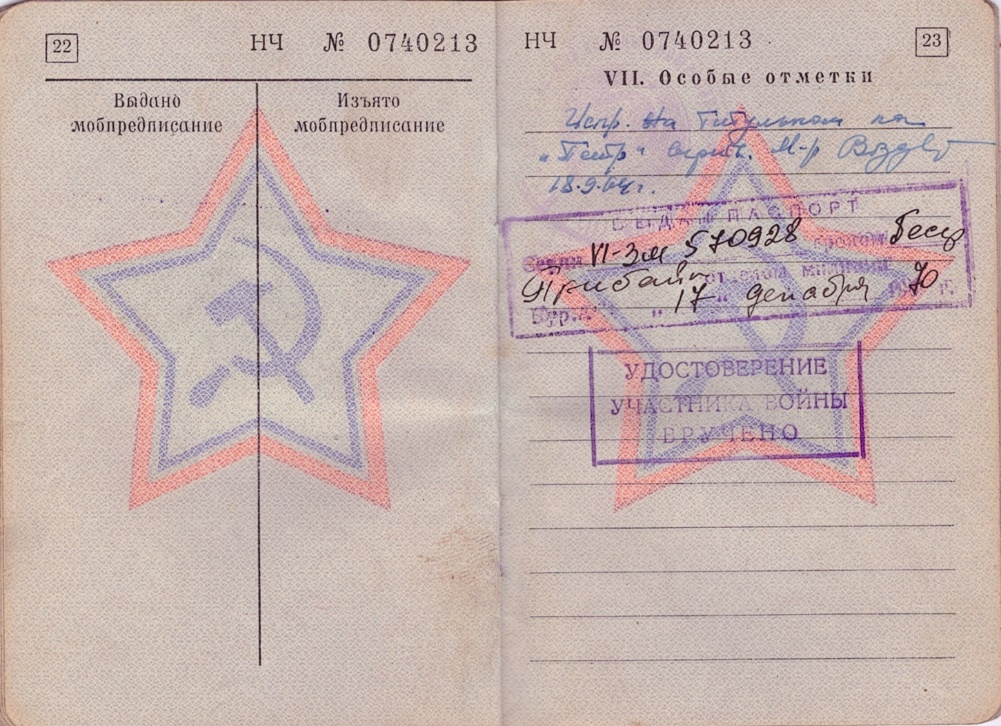 22
НЧ № 0740213
Выдано мобпредписание
Изъято мобпредписание
НЧ № 0740213
23
VII. Особые отметки
Испр. на титульном
"Петр" верить. М-р
18.9.64г.
ВЫДАН ПАСПОРТ
VI-ЗМ 570928
отделом милиции
" 17 " декабря 1970 г.
УДОСТОВЕРЕНИЕ
УЧАСТНИКА ВОЙНЫ
ВРУЧЕНО